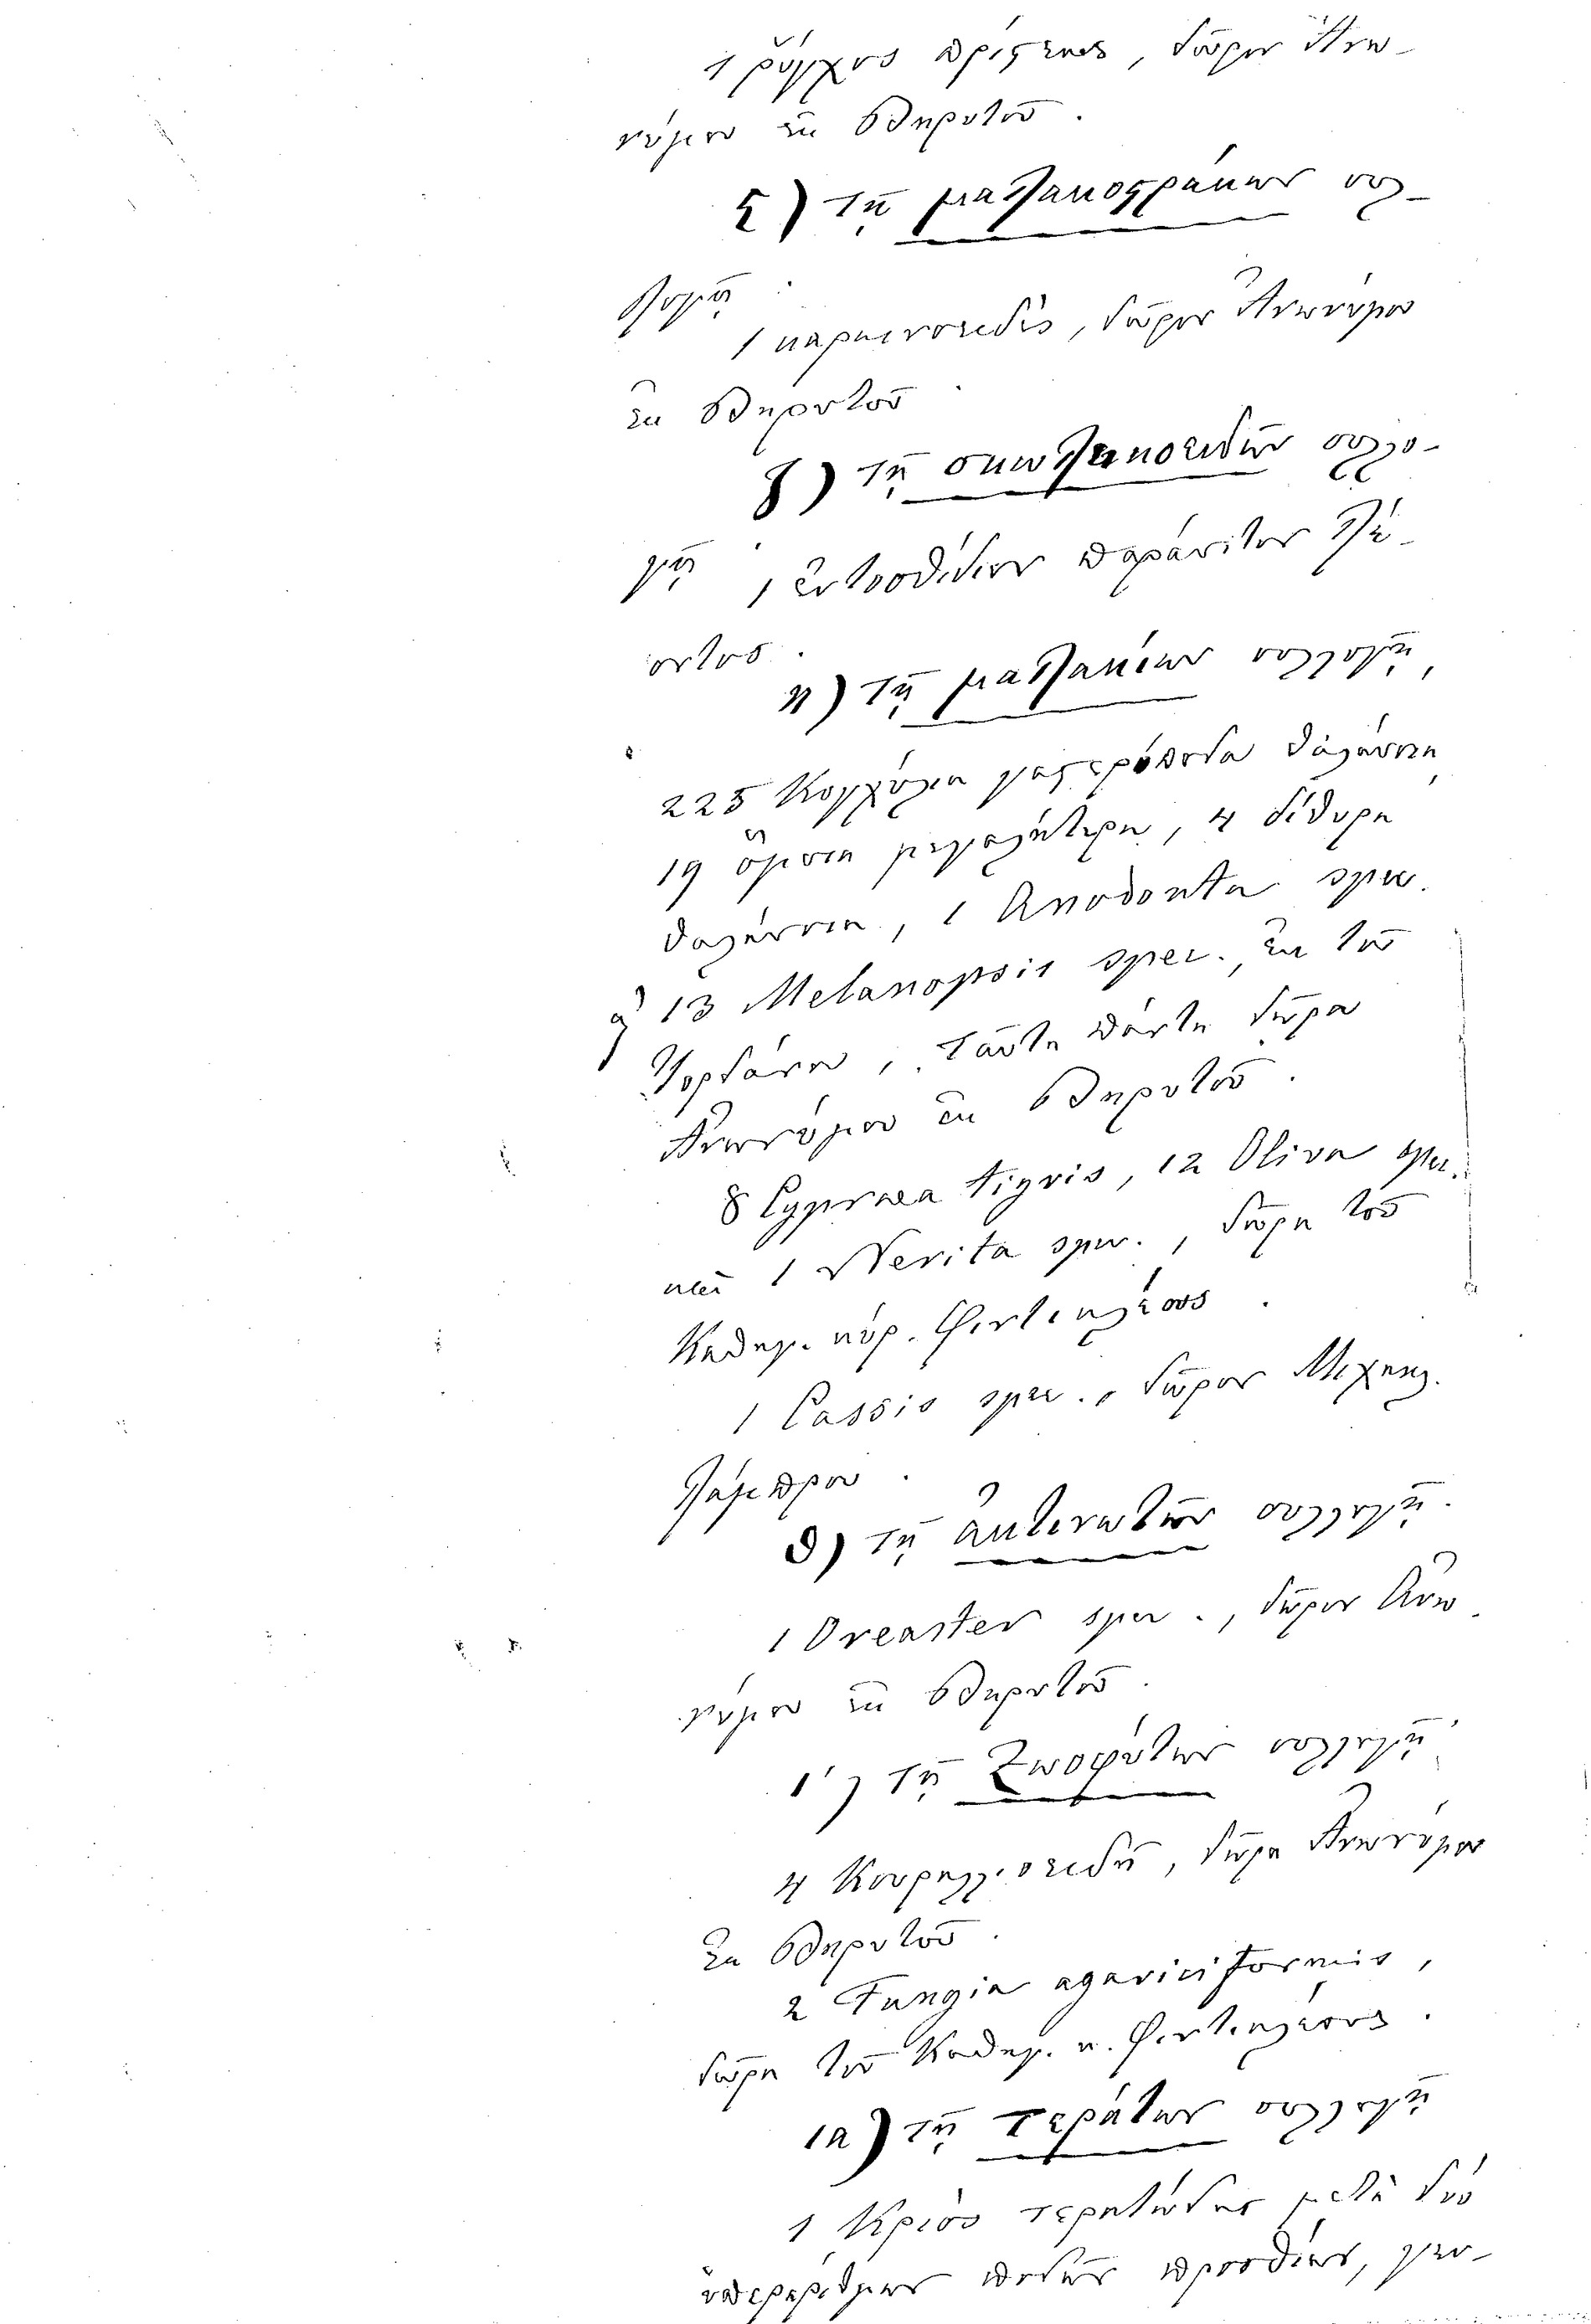 1 ῥύγχος πρίστεως, δῶρον Ἀνω-
νύμου ἐκ Βηρυτοῦ.
ϛ) τῇ μαλακοστράκων συλ-
λογῇ
1 καρκινοειδές, δῶρον Ἀνωνύμου
ἐκ Βηρυτοῦ
ζ) τῇ σκωληκοειδῶν συλλο-
γῇ
1 ἐντοσθίδιον παράσιτον λέ-
οντος.
η) τῇ μαλακίων συλλογῇ,
225 Κογχύλια γαστερόποδα θαλάσσια
19 ὅμοια μεγαλήτερα, 4 δίθυρα
θαλάσσια, 1 Anodonta spec.
13 Melanopsis spec. ἐκ τοῦ
Ἰορδάνου, ταῦτα πάντα δῶρα
Ἀνωνύμου ἐκ Βηρυτοῦ.
8 Cypraea tigris, 12 Oliva spec.
καὶ 1 Nerita spec., δῶρα τοῦ
Καθηγ. κυρ. Φιντικλέους.
1 Cassis spec., δῶρον Μιχαηλ.
Λάμπρου.
θ) τῇ ἀκτινωτῶν συλλογῇ.
1 Oreaster spec., δῶρον Ἀνω
νύμου ἐκ Βηρυτοῦ.
ι') τῇ Ζωοφύτων συλλογῇ
4 Κοραλλιοειδῆ, δῶρα Ἀνωνύμου
ἐκ Βηρυτοῦ.
2 Fungia agariciformis,
δῶρα τοῦ Καθηγ. κ. Φιντικλέους.
ια) τῇ τεράτων συλλογῇ
1 Κριὸς τερατώδης μετὰ δύο
ὑπεραρίθμων ποδῶν προσθίων, γεν-